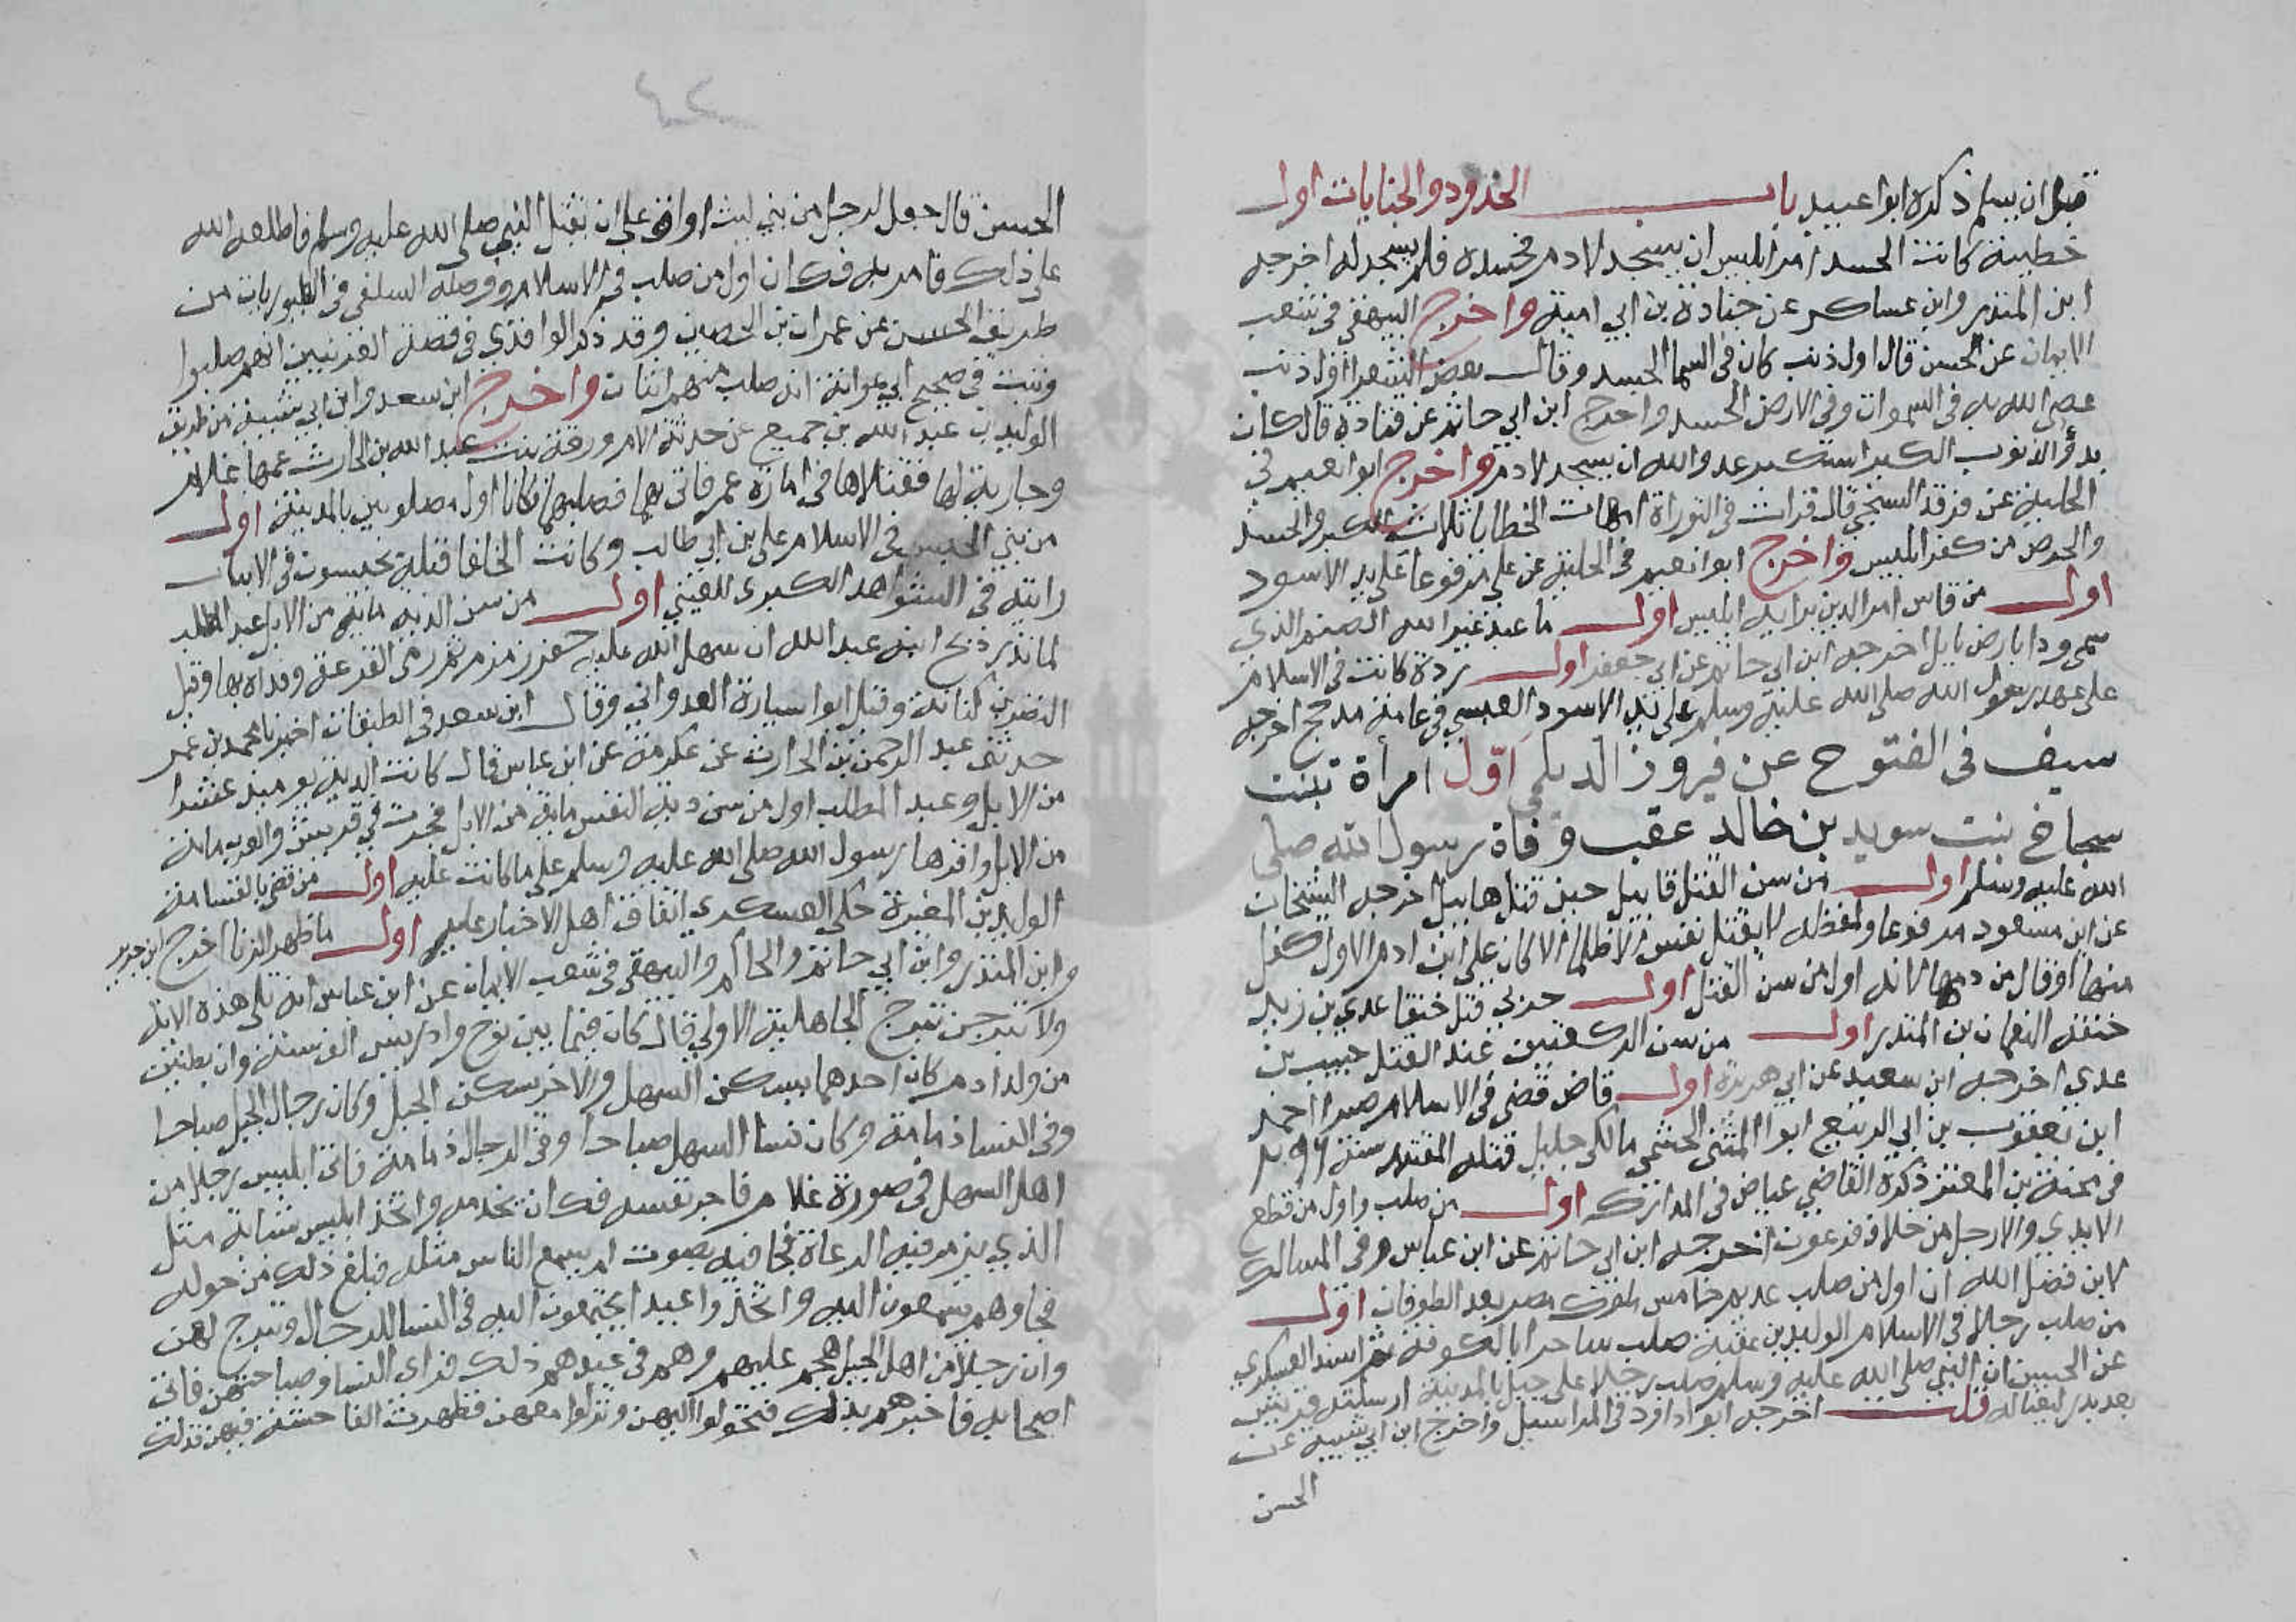 قبل ان يسلم ذكره ابوا عبيد باب الحدود والجنايات اول
خطيئة كانت الحسد امر ابليس ان يسجد لادم فحسده فلم يسجد له اخرجه
ابن المنذر وابن عساكر عن جنادة بن ابي امية واخرج البيهقي في شعب
الايمان عن الحسن قال اول ذنب كان في السما الحسد وقال بعض الشعرا اول ذنب
عصى الله به في السموات وفي الارض الحسد واخرج ابن ابي حاتم عن قتادة قال كان
بدؤ الذنوب الكبر استكبر عدو الله ان يسجد لادم واخرج ابوا نعيم في
الحلية عن فرقد السنجي قال قرات في التوراة امهات الخطايا ثلاث الكبر والحسد
والحرص من كفر ابليس واخرج ابوا نعيم في الحلية عن علي مرفوعا على يد الاسود
اول من قاس امر الدين برايه ابليس اول ما عبد غير الله الصنم الذي
سمي ودا بارض بابل اخرجه ابن ابي حاتم عن ابي جعفر اول ردة كانت في الاسلام
على عهد رسول الله صلى الله عليه وسلم على يد الاسود العبسي في عامة مدحج اخرجه
سيف في الفتوح عن فيروز الديلمي اوّل امرأة تبنت
سجاح بنت سويد بن خالد عقب وفاة رسول الله صلى
الله عليه وسلم اول من سن القتل قابيل حين قتل هابيل اخرجه الشيخان
عن ابن مسعود مرفوعا ولفظه لا يقتل نفس ظلما الا كان على ابن ادم الاول كفل
منها او قال من دمها لانه اول من سن القتل اول حربي قتل خنقا عدي بن زيد
خنقه النعمان بن المنذر اول من سن الركعتين عند القتل خبيب بن
عدي اخرجه ابن سعيد عن ابي هريرة اول قاض قضى في الاسلام صبرا احمد
ابن يعقوب بن ابي الربيع ابوا المثنى الحثمي مالكي جليل قتله المقتدر سنة ٢٩٦
في محنة بن المعتز ذكره القاضي عياض في المدارك اول من صلب واول من قطع
الايدي والارجل من خلاف فرعون اخرجه ابن ابي حاتم عن ابن عباس وفي المسالك
لابن فضل الله ان اول من صلب عديم خامس ملوك مصر بعد الطوفان اول
من صلب رجلا في الاسلام الوليد بن عقبة صلب ساحرا بالكوفة ثم اسند العسكري
عن الحسين ان النبي صلى الله عليه وسلم صلب رجلا على جبل بالمدينة ارسلته قريش
بعد بدر ليغتاله قلت اخرجه ابوا داود في المراسيل واخرج ابن ابي شيبة عن
الحسن
٤٢
الحسن قال جعل لرجل من بني ليث اواق على ان يقتل النبي صلى الله عليه وسلم فاطلعه الله
على ذلك فامر به فكان اول من صلب في الاسلام ووصله السلفي في الطيوريات من
طريق الحسن عن عمران بن الحصين وقد ذكر الواقدي في قصة العرنيين انهم صلبوا
وثبت في صحيح ابي عوانة انه صلب منهم اثنان واخرج ابن سعد وابن ابي شيبة من طريق
الوليد بن عبد الله بن جميع عن حدثه الام ورقة بنت عبد الله بن الحارث عمها غلام
وجارية لها فقتلاها في امارة عمر فاتى بهما فصلبهما فكانا اول مصلوبين بالمدينة اول
من بني الحبس في الاسلام علي بن ابي طالب وكانت الخلفا قبله يحبسون في الابار
رايته في الشواهد الكبرى للعيني اول من سن الدية ماية من الابل عبد المطلب
لما نذر ذبح ابنه عبد الله ان سهل الله عليه حفر زمزم ثم رمى القرعة وفداه بها وقيل
النضر بن كنانة وقيل ابوا سيارة العدواني وقال ابن سعد في الطبقات اخبرنا محمد بن عمر
حدثني عبد الرحمن بن الحارث عن عكرمة عن ابن عباس قال كانت الدية يوميذ عشرا
من الابل وعبد المطلب اول من سن دية النفس ماية من الابل فجرت في قريش والعرب ماية
من الابل واقرها رسول الله صلى الله عليه وسلم على ما كانت عليه اول من قضى بالقسامة
الوليد بن المغيرة حكى العسكري اتفاق اهل الاخبار عليه اول ما ظهر الزنا اخرج ابن جرير
وابن المنذر وابن ابي حاتم والحاكم والبيهقي في شعب الايمان عن ابن عباس انه تلى هذه الاية
ولا تبرجن تبرج الجاهلية الاولى قال كان فيما بين نوح وادريس الف سنة وان بطنين
من ولد ادم كان احدهما يسكن السهل والاخر يسكن الجبل وكان رجال الجبل صباحا
وفي النسا ذمامة وكان نسا السهل صباحا وفي الرجال ذمامة فاتى ابليس رجلا من
اهل السهل في صورة غلام فاجر نفسه فكان يخدمه واتخذ ابليس شبابة مثل
الذي يزمر فيه الرعاة فجا فيه بصوت لم يسمع الناس مثله فبلغ ذلك من حوله
فجاوهم يسمعون اليه واتخذوا عيدا يجتمعون اليه في النسا للرجال وتبرج لهن
وان رجلا من اهل الجبل هجم عليهم وهم في عيدهم ذلك فراى النسا وصباحتهن فاتى
اصحابه فاخبرهم بذلك فتحولوا اليهن ونزلوا معهن فظهرت الفاحشة فيهن فذلك